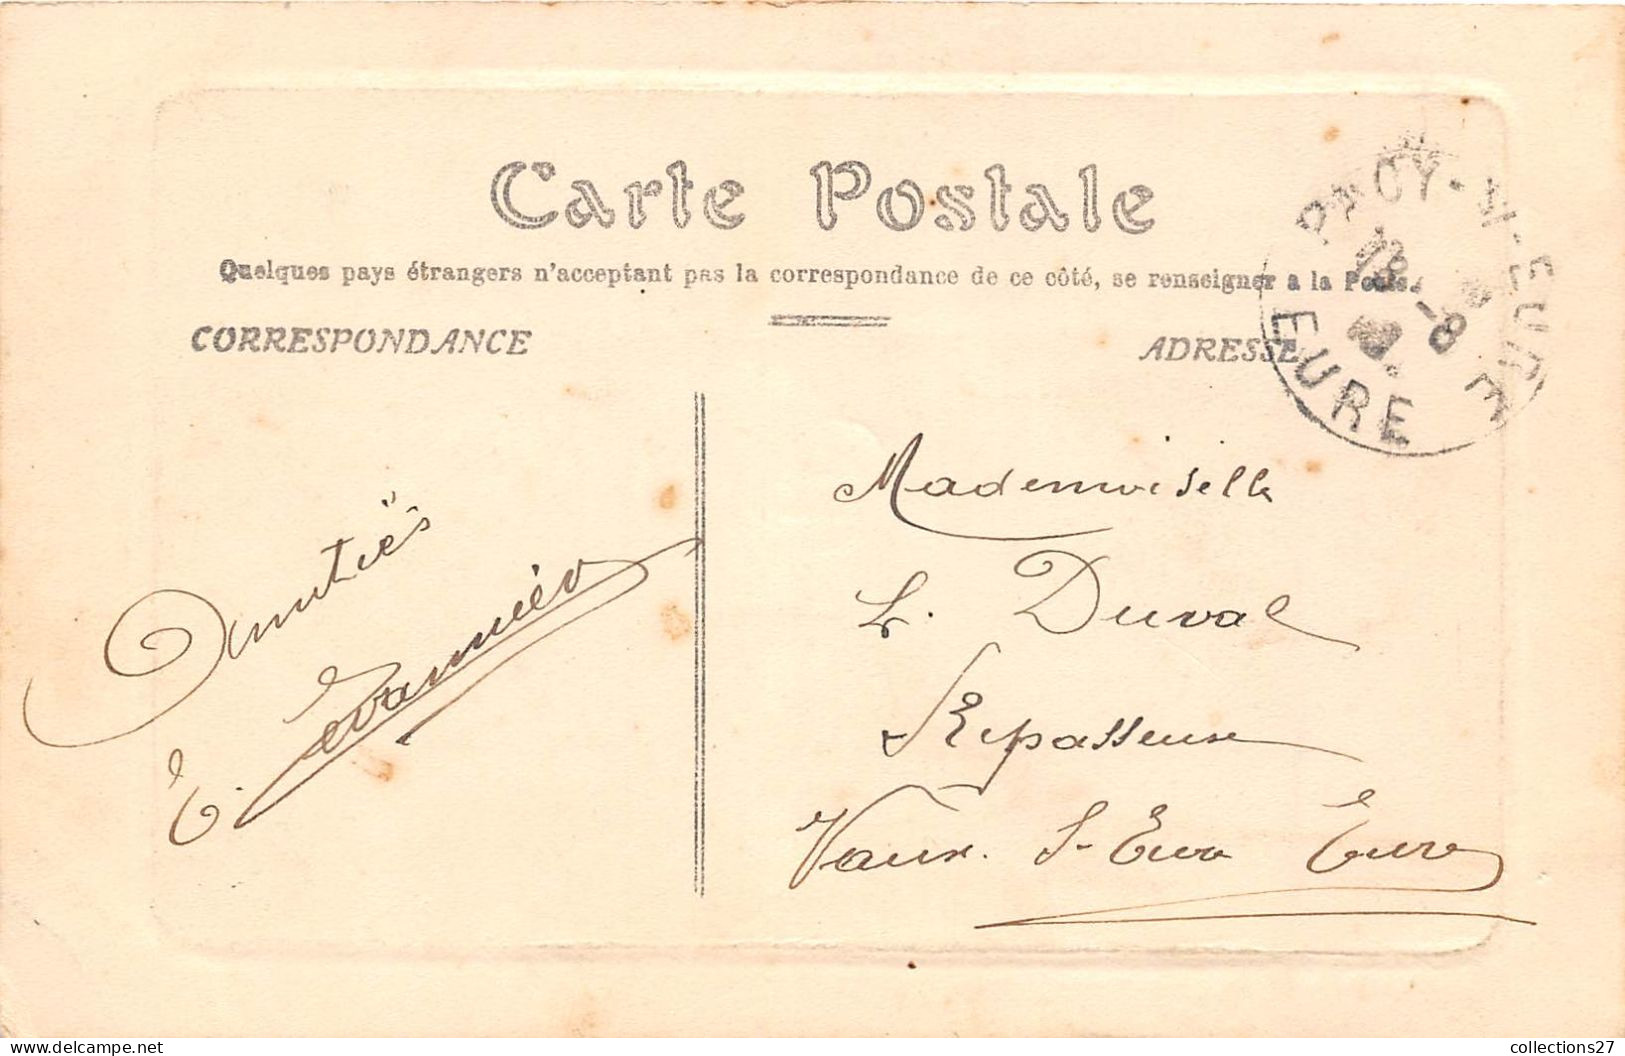 Carte Postale
Quelques pays étrangers n'acceptant pas la correspondance de ce côté, se renseigner a la Poste.
CORRESPONDANCE
ADRESSE
PACY-S-EURE
EURE
Amitiés
E.
Mademoiselle
L. Duval
Repasseuse
Vaux. S-Eure Eure
www.delcampe.net
collections27